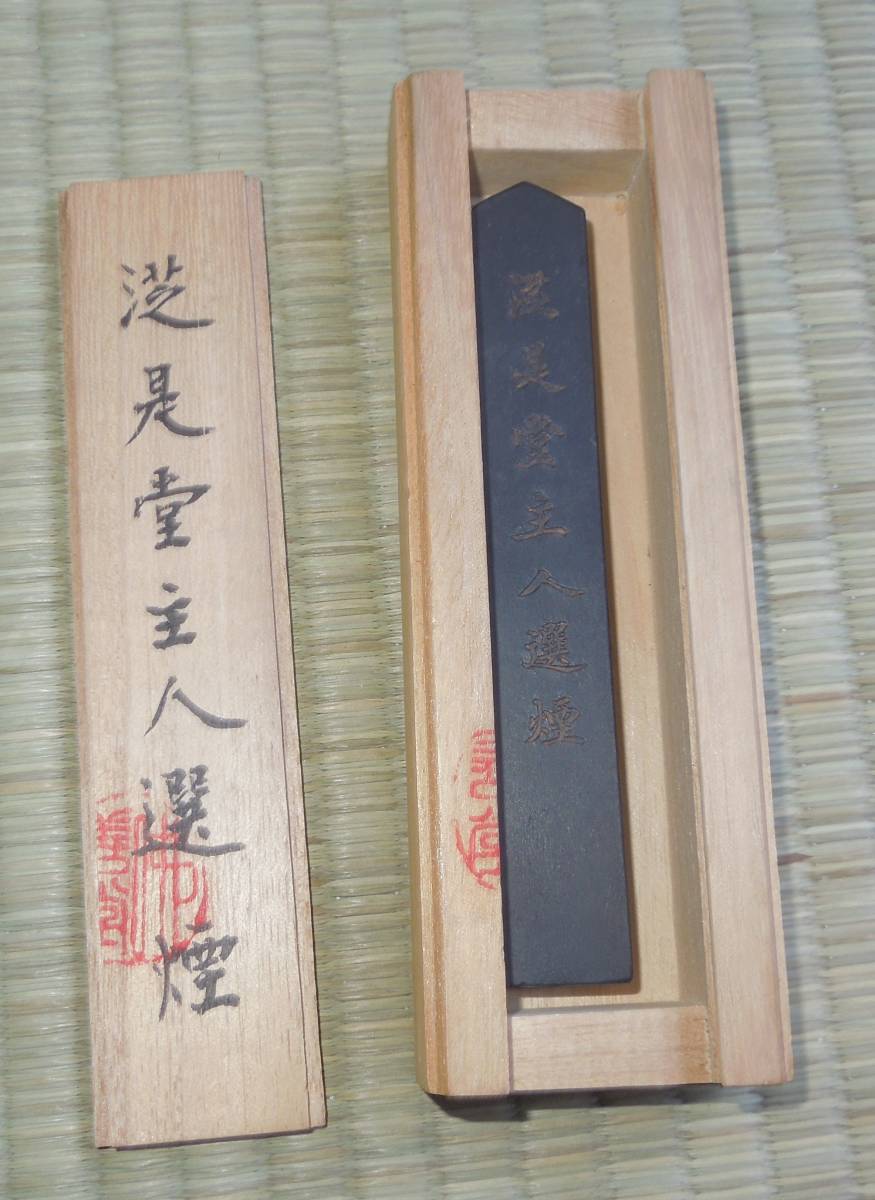 是堂主人選煙
是堂主人選煙